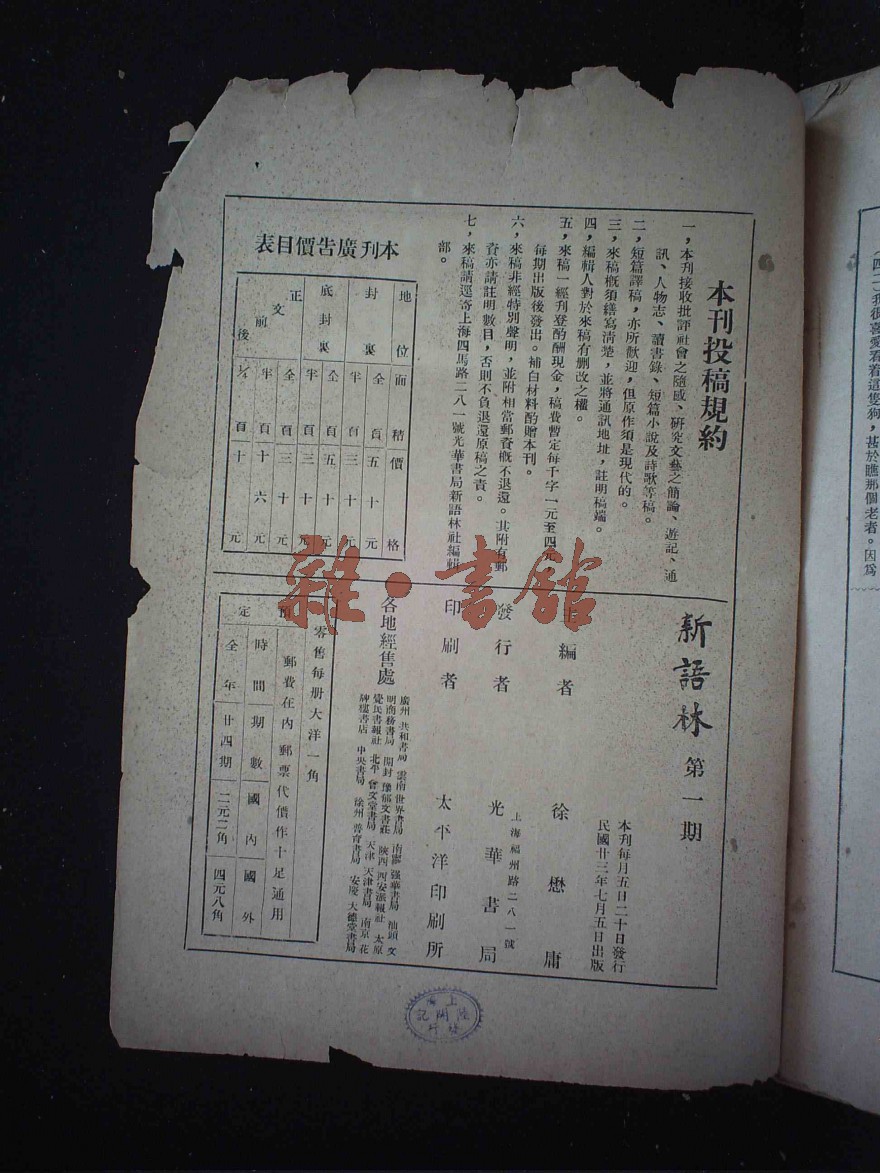 本刊投稿規約
一，本刊接收批評社會之隨感、研究文藝之簡論、遊記、通
訊、人物志、讀書錄、短篇小說及詩歌等稿。
二，短篇譯稿，亦所歡迎，但原作須是現代的。
三，來稿概須繕寫清楚，並將通訊地址，註明稿端。
四，編輯人對於來稿有刪改之權。
五，來稿一經刊登酌酬現金，稿費暫定每千字一元至四元
每期出版後發出。補白材料酌贈本刊。
六，來稿非經特別聲明，並附相當郵資概不退還。其附有郵
資亦請註明數目，否則不負退還原稿之責。
七，來稿請逕寄上海四馬路二八一號光華書局新語林社編輯
部。
本刋廣告價目表
地位 面積 價格
封裏 全頁 五十元
半頁 三十元
底封裏 全頁 五十元
半頁 三十元
正文前後 全頁 三十元
半頁 十六元
¼頁 十元
新語林 第一期
本刊每月五日二十日發行
民國廿三年七月五日出版
主編者 徐懋庸
發行者 光華書局
上海福州路二八一號
印刷者 太平洋印刷所
各地經售處
廣州 共和書局 雲南 世界書局 南寧 强華書局 汕頭 文
明商務書局 開封 豫郁文書莊 陝西 西安派報社 太原
覺民書報社 北平 會文堂書局 天津 天津書局 南京 花
牌樓書店 中央書局 徐州 普育書局 安慶 大德堂書局
零售每册大洋一角
郵費在內郵票代價作十足通用
預定
時間 期數 國內 國外
全年 廿四期 二元二角 四元八角
雜·書館
(四二)我很喜愛看着這隻狗，甚於瞧那個老者。因爲